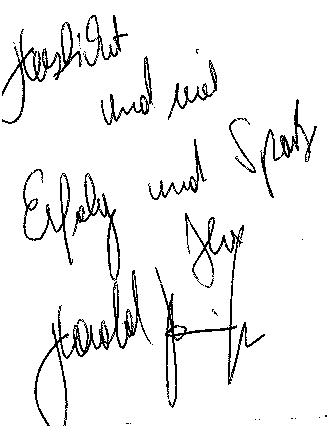 Herzlichst
und viel
Erfolg und Spaß
Ihr
Harald